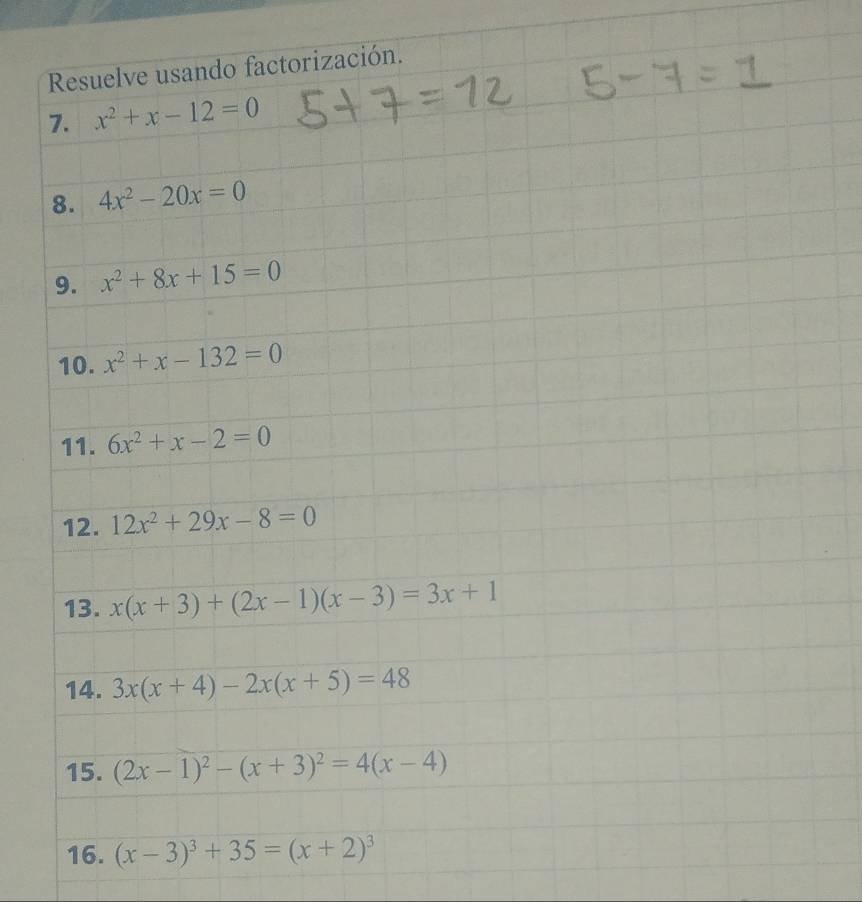 Resuelve usando factorización.
7. x² + x − 12 = 0 5+7=12 5-7=1
8. 4x² − 20x = 0
9. x² + 8x + 15 = 0
10. x² + x − 132 = 0
11. 6x² + x − 2 = 0
12. 12x² + 29x − 8 = 0
13. x(x + 3) + (2x − 1)(x − 3) = 3x + 1
14. 3x(x + 4) − 2x(x + 5) = 48
15. (2x − 1)² − (x + 3)² = 4(x − 4)
16. (x − 3)³ + 35 = (x + 2)³